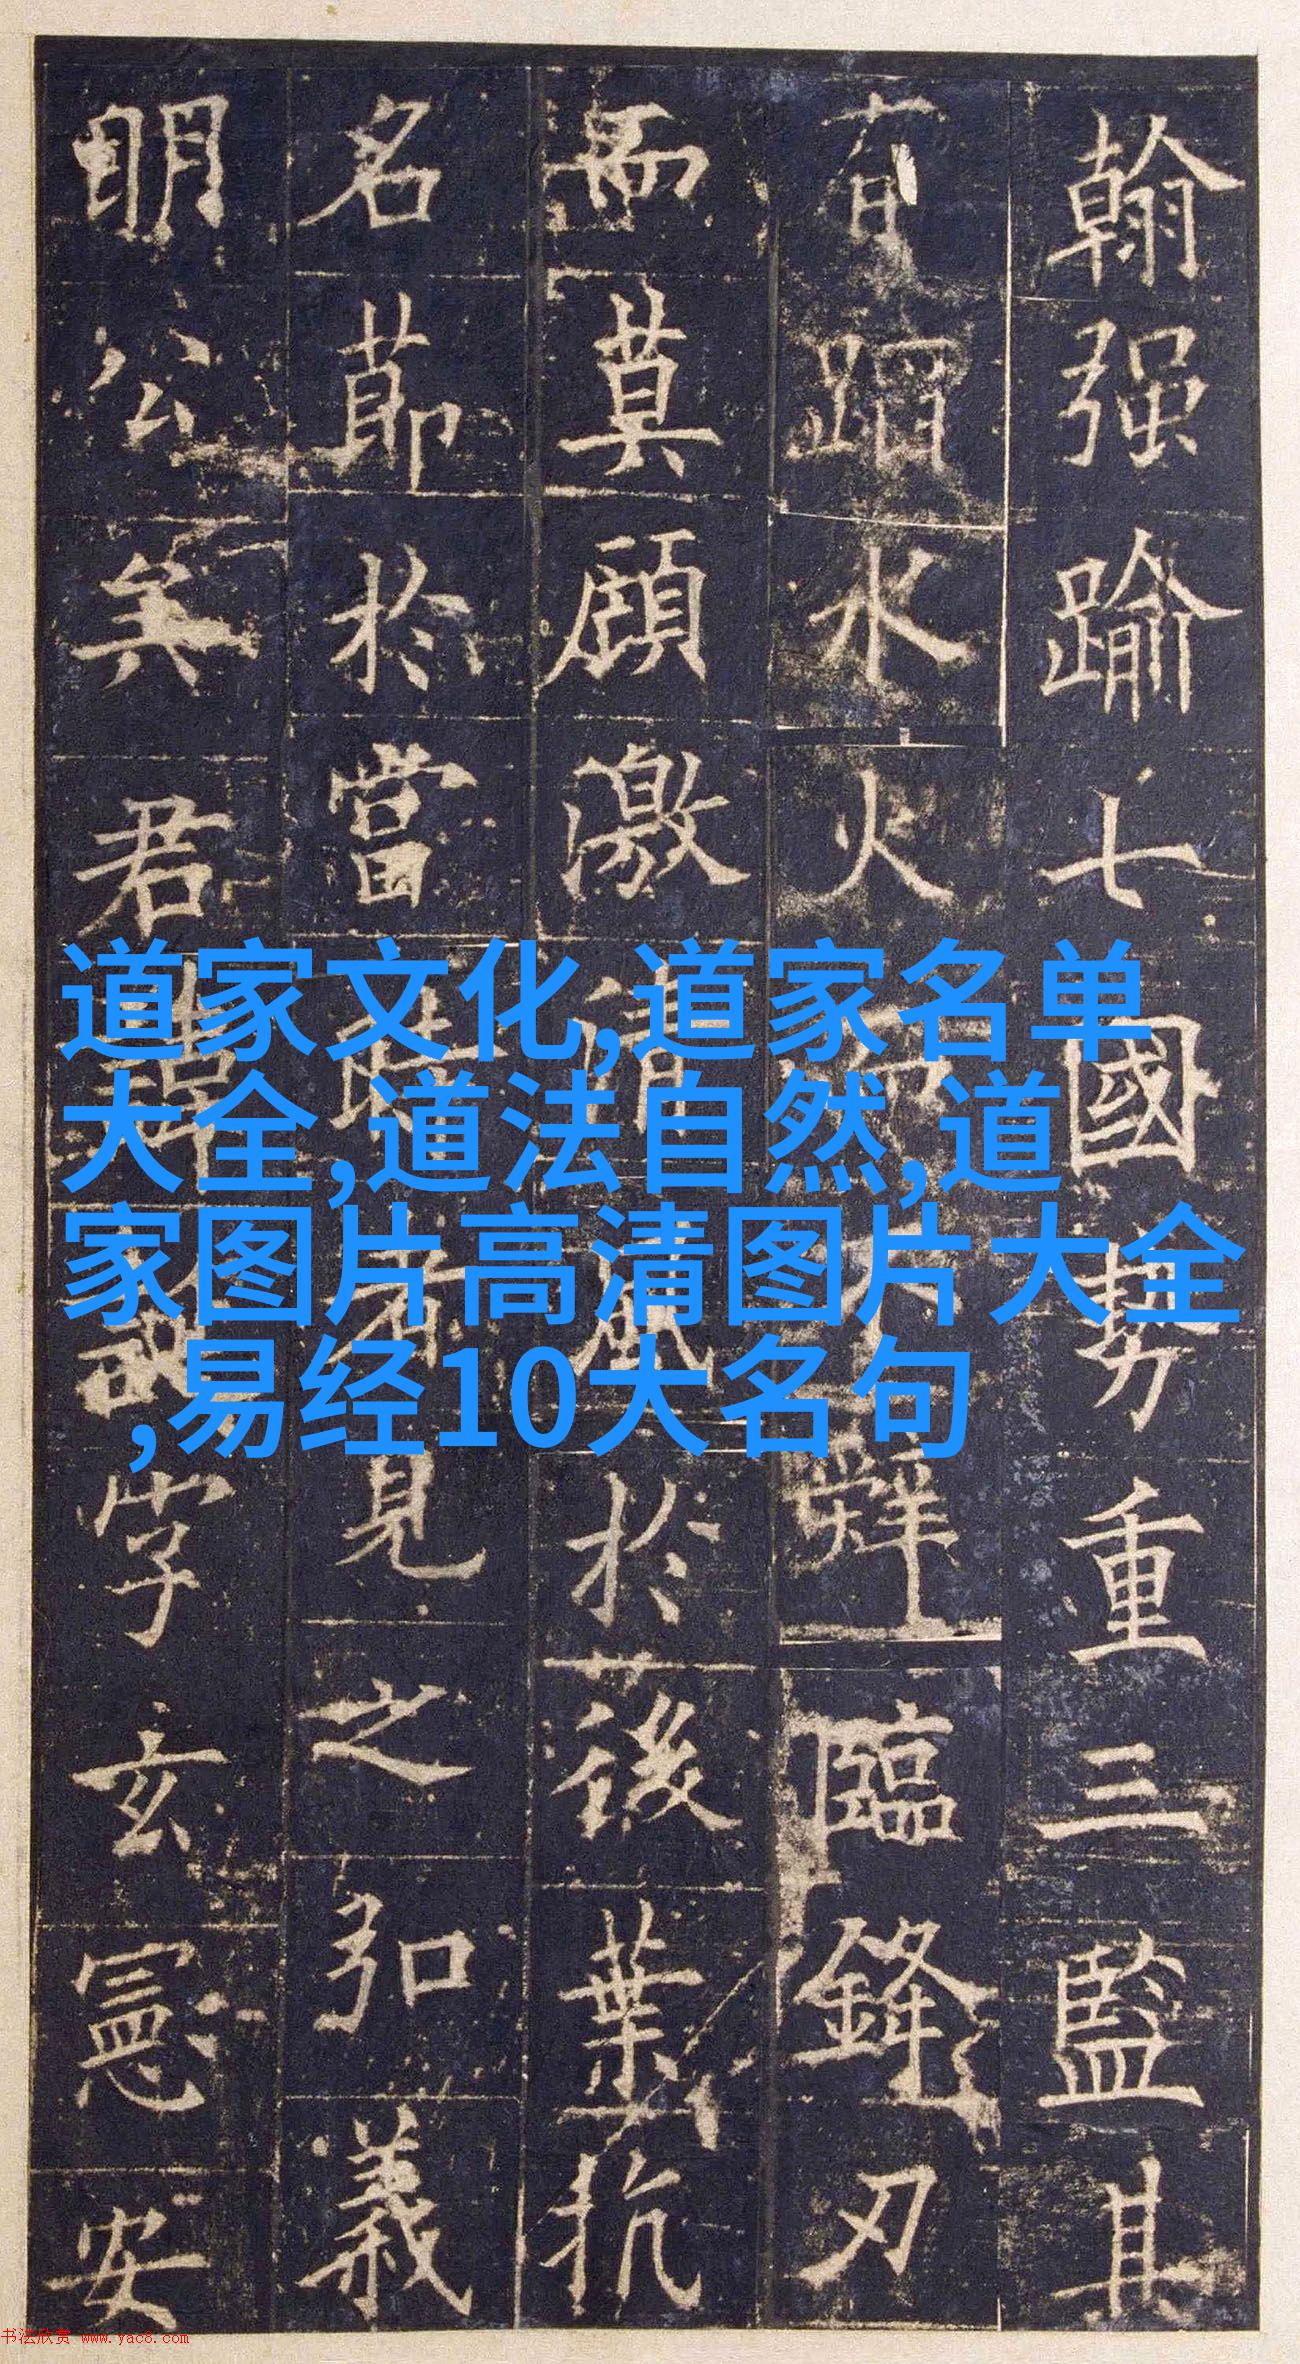 道家文化,道家名单
大全,道法自然,道
家图片高清图片大全
,易经10大名句
翰强踰七國勢重三監其
有蹈水火而不辭臨鋒刃
而莫顧激清風於後葉抗
名節於當時者見之弘義
明公矣君諱誕字玄憲安
书法欣赏 www.yac8.com